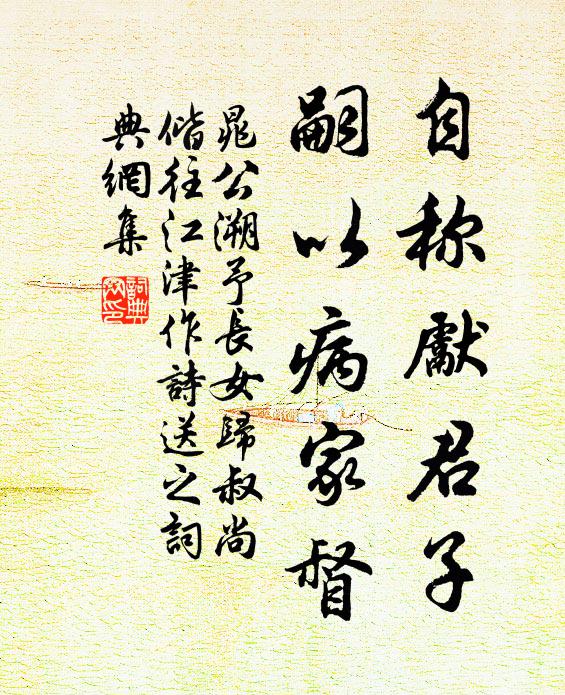 自称獻君子
嗣以病家督
晁公溯予長女歸叔尚
偕往江津作詩送之詞
典網集
詞典
网印